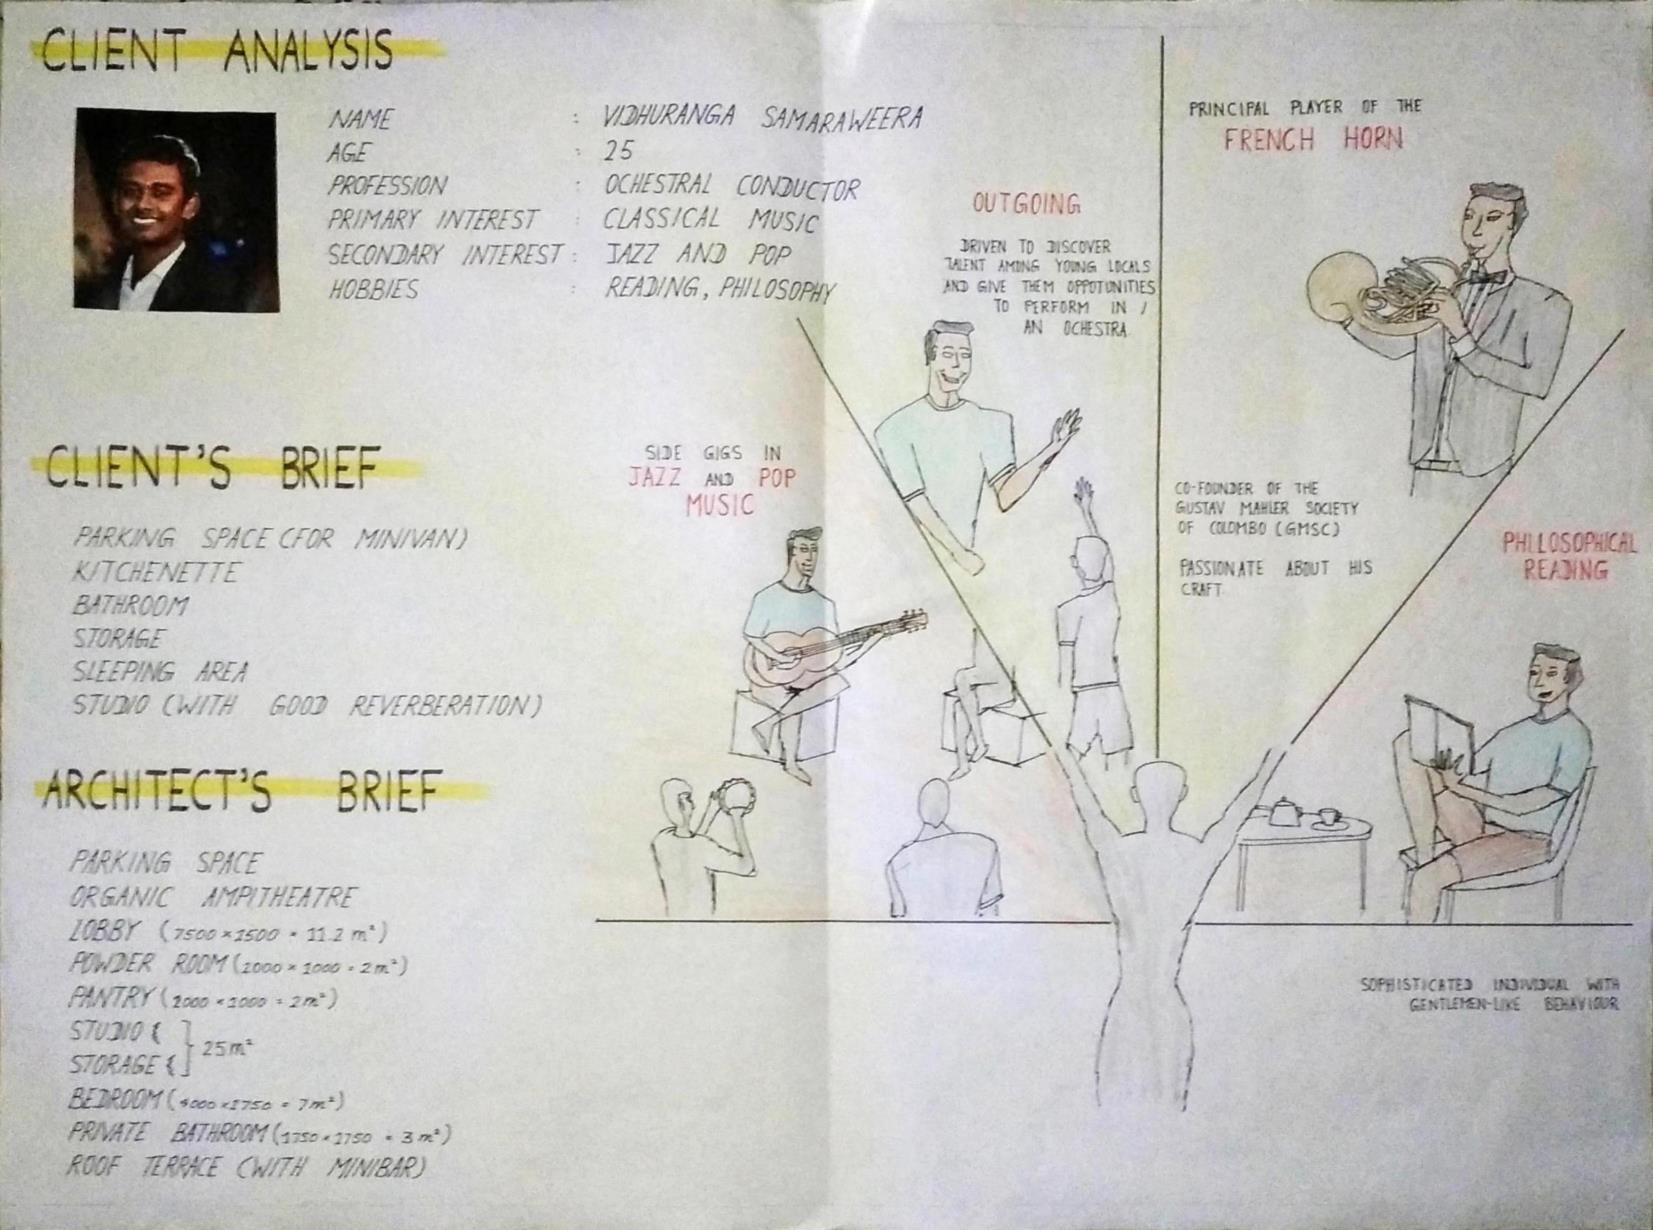 CLIENT ANALYSIS
NAME : VIDHURANGA SAMARAWEERA
AGE : 25
PROFESSION : OCHESTRAL CONDUCTOR
PRIMARY INTEREST : CLASSICAL MUSIC
SECONDARY INTEREST : JAZZ AND POP
HOBBIES : READING, PHILOSOPHY
CLIENT'S BRIEF
PARKING SPACE (FOR MINIVAN)
KITCHENETTE
BATHROOM
STORAGE
SLEEPING AREA
STUDIO (WITH GOOD REVERBERATION)
ARCHITECT'S BRIEF
PARKING SPACE
ORGANIC AMPITHEATRE
LOBBY (7500 × 1500 = 11.2 m²)
POWDER ROOM (2000 × 1000 = 2m²)
PANTRY (2000 × 1000 = 2m²)
STUDIO { } 25m²
STORAGE {
BEDROOM (4000 × 1750 = 7m²)
PRIVATE BATHROOM (1750 × 1750 = 3m²)
ROOF TERRACE (WITH MINIBAR)
SIDE GIGS IN
JAZZ AND POP
MUSIC
OUTGOING
DRIVEN TO DISCOVER
TALENT AMONG YOUNG LOCALS
AND GIVE THEM OPPOTUNITIES
TO PERFORM IN /
AN OCHESTRA
PRINCIPAL PLAYER OF THE
FRENCH HORN
CO-FOUNDER OF THE
GUSTAV MAHLER SOCIETY
OF COLOMBO (GMSC)
PASSIONATE ABOUT HIS
CRAFT
PHILOSOPHICAL
READING
SOPHISTICATED INDIVIDUAL WITH
GENTLEMEN-LIKE BEHAVIOUR